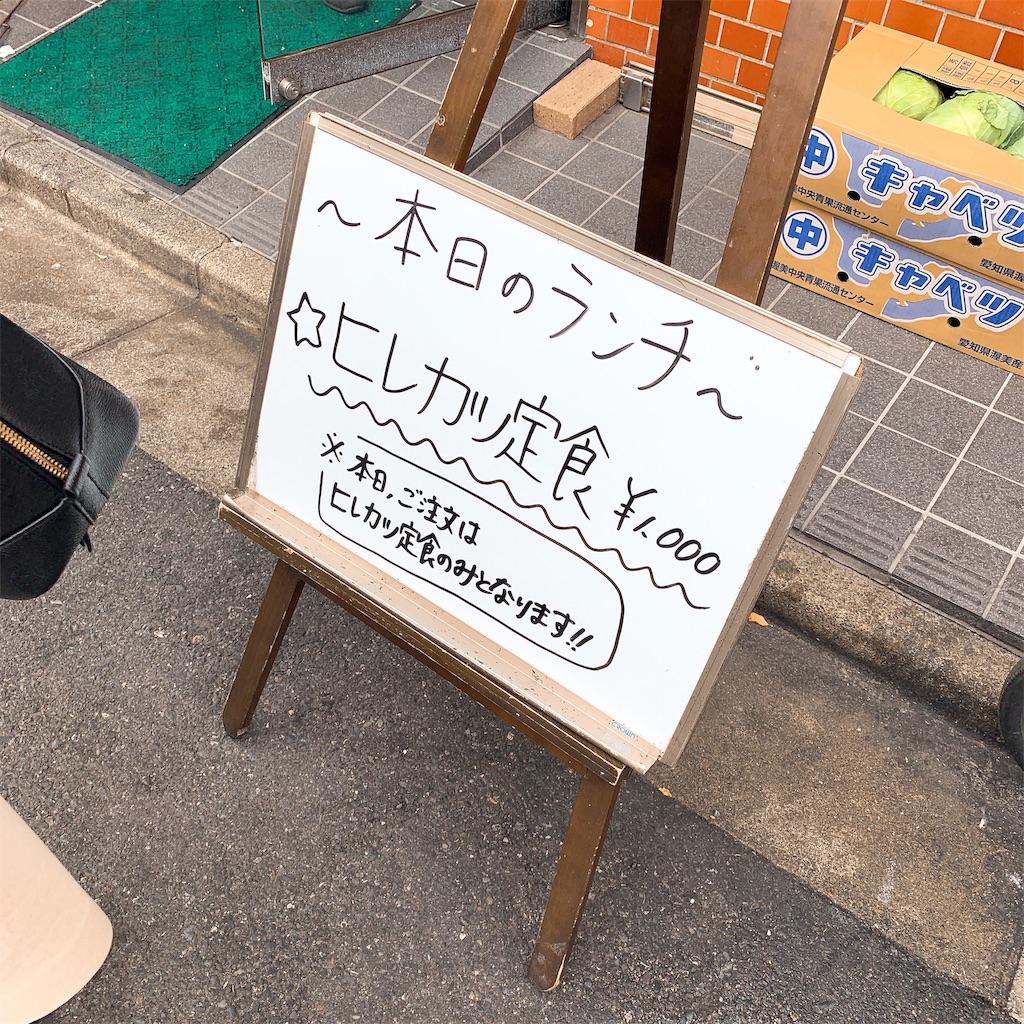 ～本日のランチ～
☆ヒレカツ定食 ¥1.000
※本日、ご注文は
ヒレカツ定食のみとなります!!
crown
中 キャベツ
美中央青果流通センター
愛知県渥
中 キャベツ
渥美中央青果流通センター
愛知県渥美産